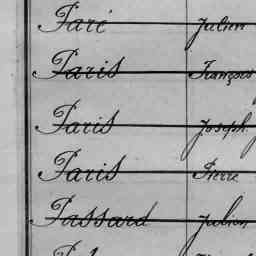 Paré Julien
Paris François
Paris Joseph
Paris Pierre
Passard Julien